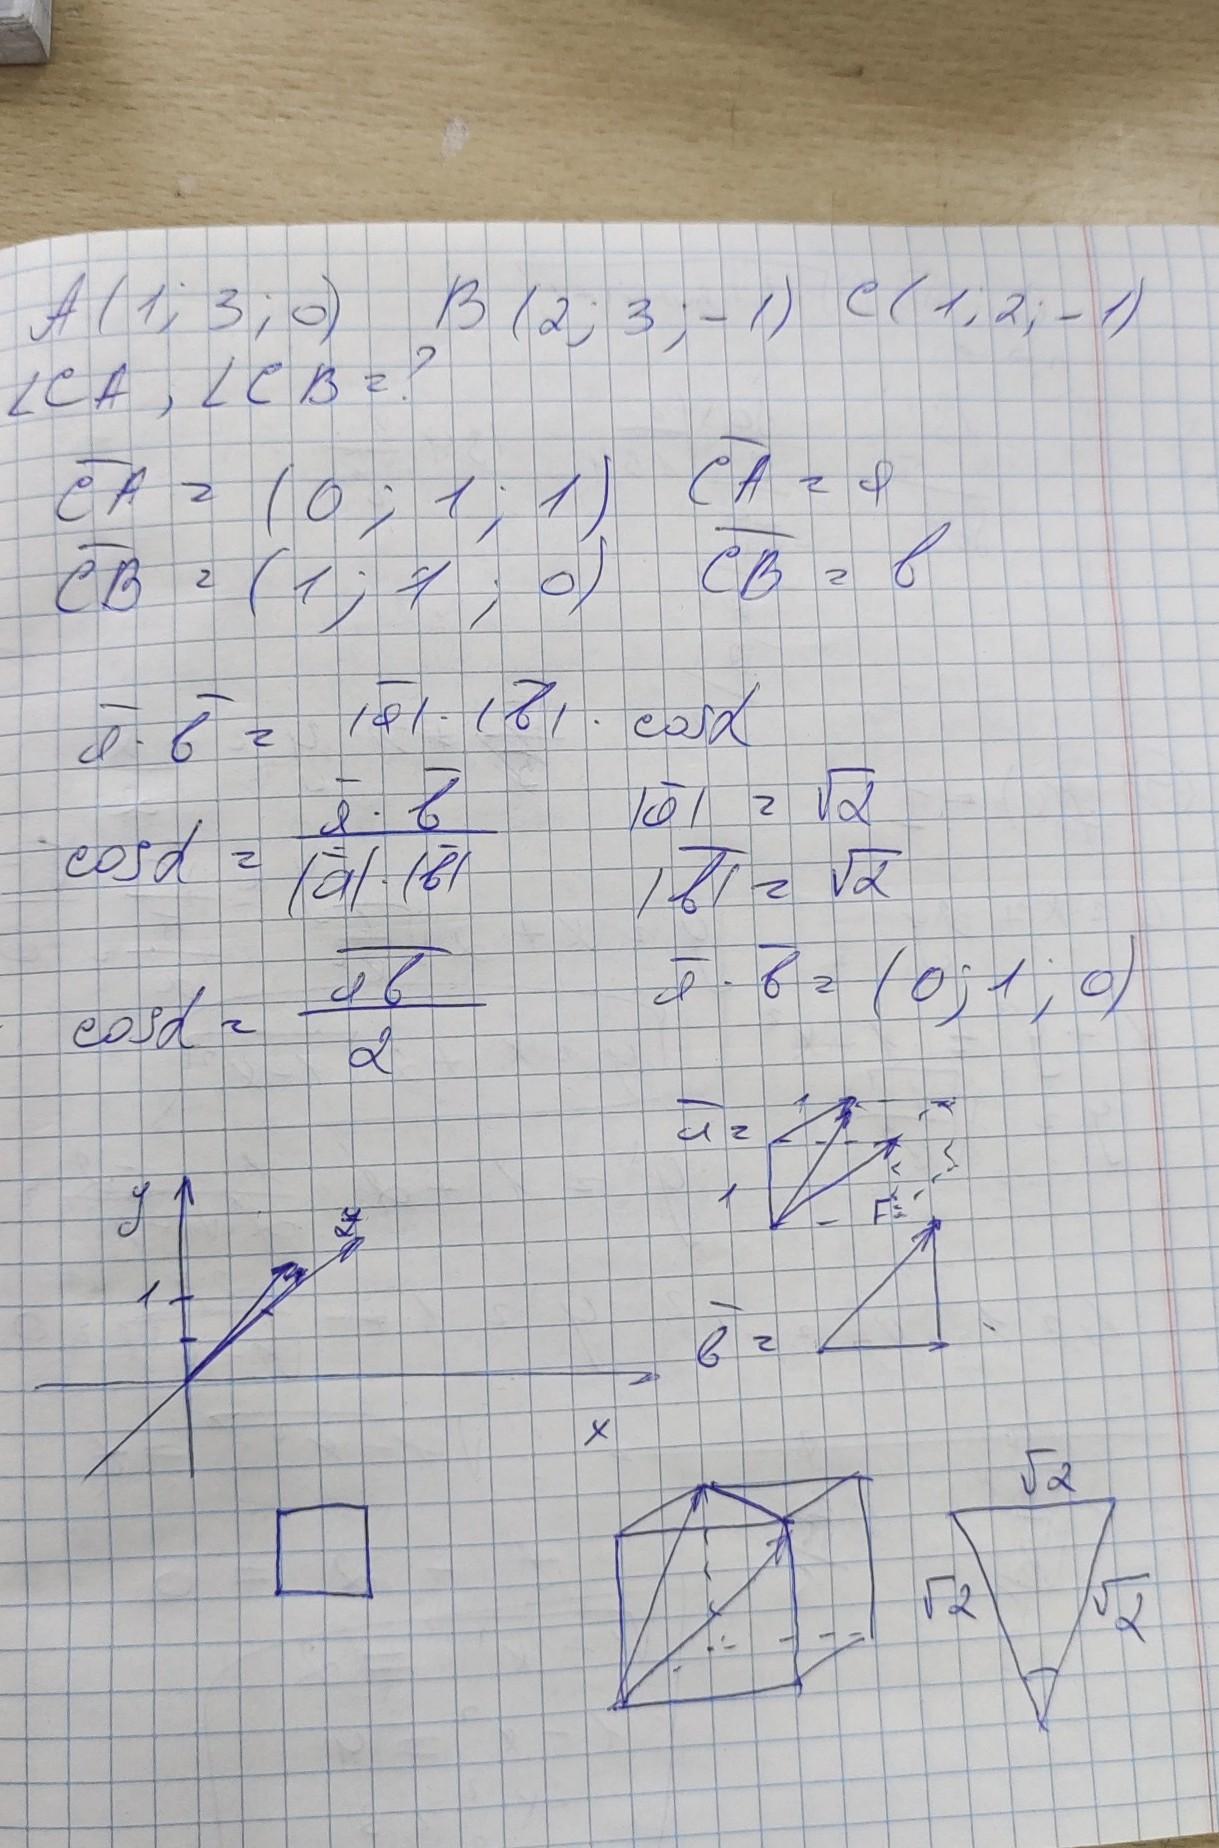 A(1; 3; 0) B(2; 3; -1) C(1; 2; -1)
∠CA, ∠CB = ?
C̅A̅ = (0; 1; 1) C̅A̅ = a
C̅B̅ = (1; 1; 0) C̅B̅ = b
a̅ · b̅ = |a̅| · |b̅| · cosα
cosα = a̅ · b̅ / |a̅| · |b̅| |a̅| = √2
|b̅| = √2
cosα = a̅b̅ / 2 a̅ · b̅ = (0; 1; 0)
a̅ = 1
1
y
1
b̅ =
x
√2
√2 √2